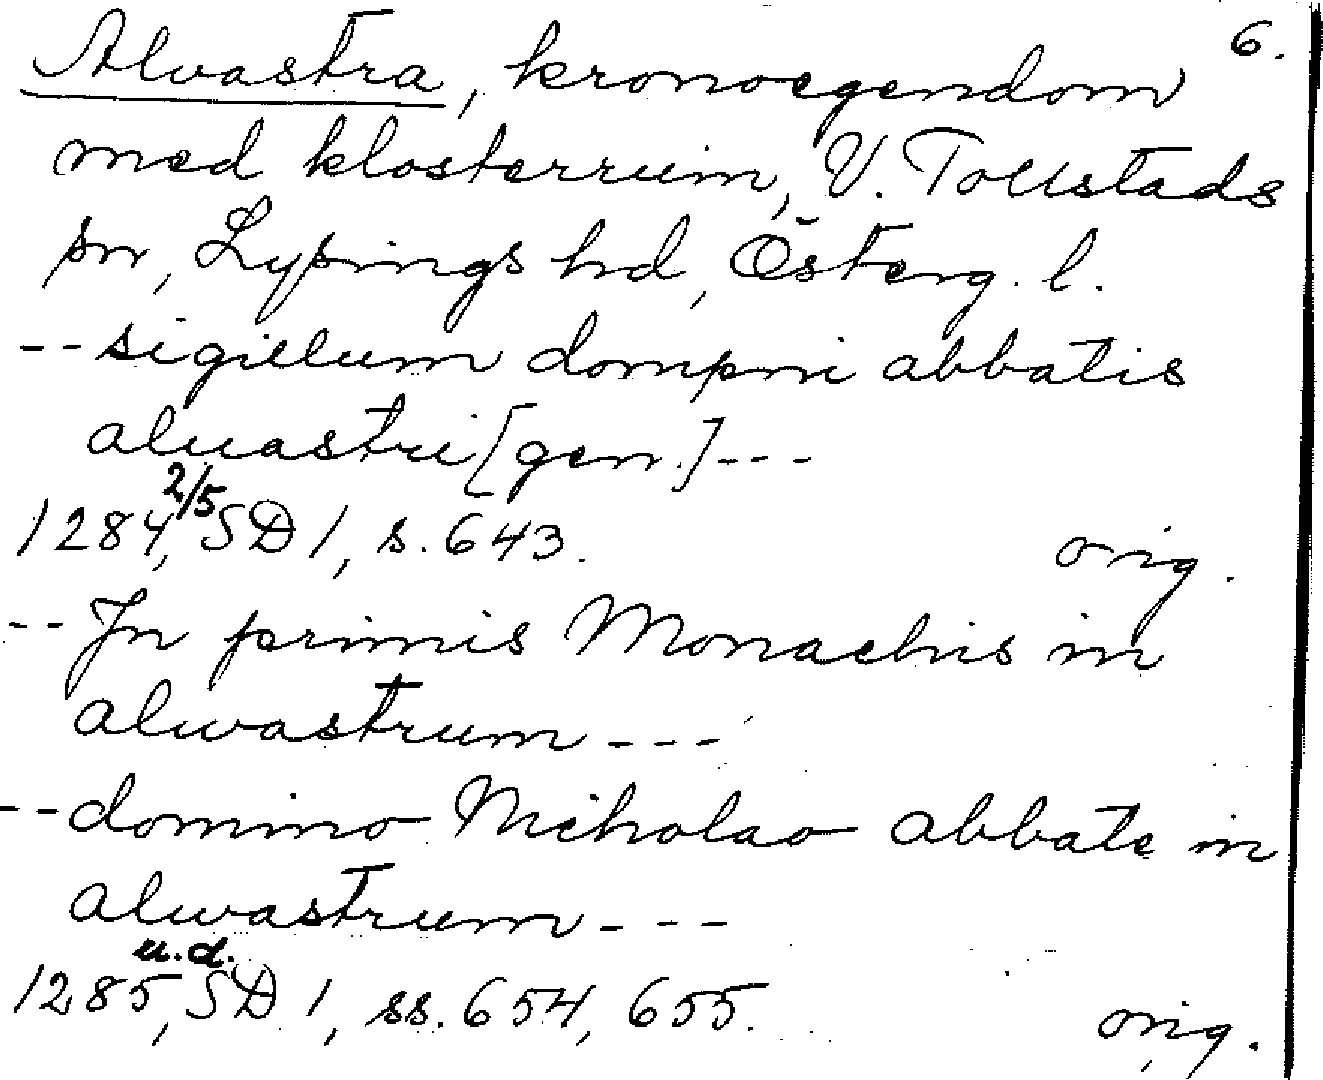 6.
Alvastra, kronoegendom
med klosterruin, V. Tollstads
sn, Lysings hd, Österg. l.
-- sigillum dompni abbatis
aluastri [gen.] ---
1284 2/5, SD 1, s. 643. orig.
-- Jn primis Monachis in
alwastrum ---
-- domino Nicholao abbate in
alwastrum ---
1285 u.d., SD 1, ss. 654, 655. orig.